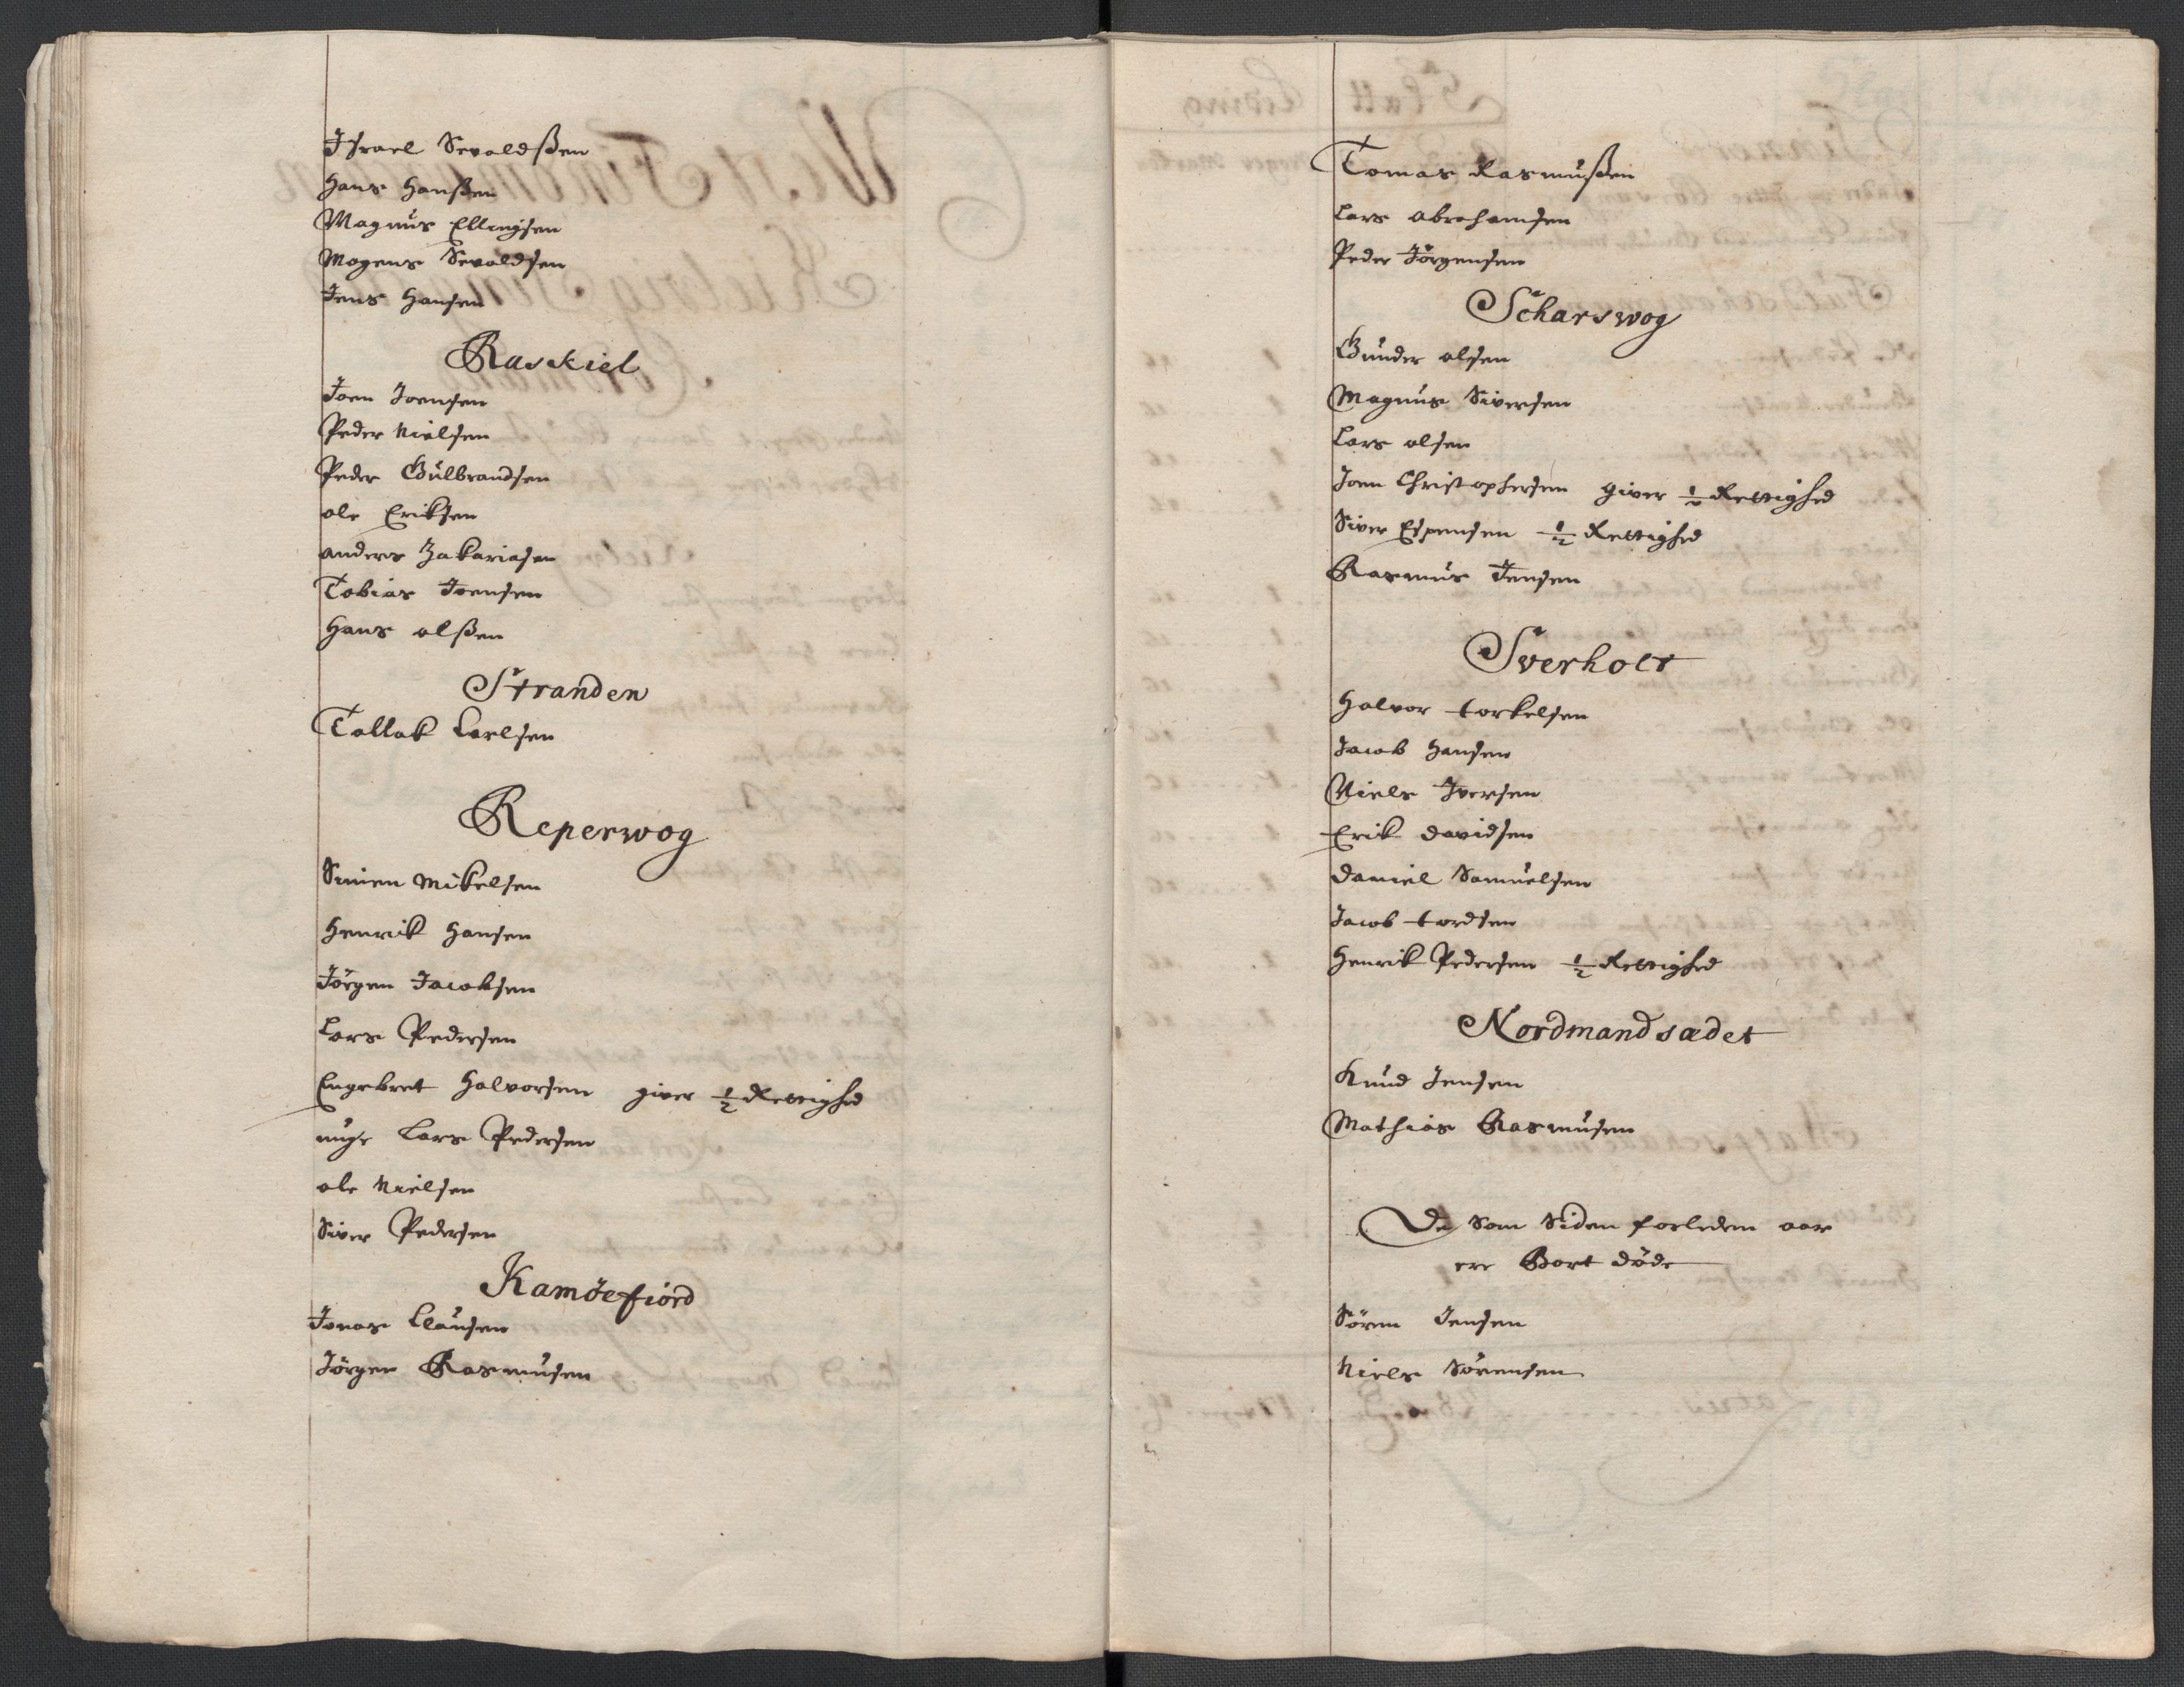 Jsrael Sevaldßen
Hans Hanßen
Magnus Ellingsen
Mogens Sevaldsen
Jens Hansen
Raskiel
Joen Joensen
Peder Nielsen
Peder Gulbrandsen
ole Eriksen
anders Zakariasen
Tobias Joensen
Hans olßen
Stranden
Tollak Carlsen
Reperwog
Simen Mikelsen
Henrik Hansen
Jörgen Jacobsen
Lars Pedersen
Engebret Halvorsen giver ½ Rettighed
unge Lars Pedersen
ole Nielsen
Siver Pedersen
Kamöefiord
Jonas Clausen
Jörgen Rasmusen
Tomas Rasmußen
Lars abrahamsen
Peder Jörgensen
Scharswog
Gunder olsen
Magnus Siversen
Lars olsen
Joen Christophersen giver ½ Rettighed
Siver Espensen ½ Rettighed
Rasmus Jensen
Sverholt
Halvor torkelsen
Jacob Hansen
Niels Jversen
Erik davidsen
daniel Samuelsen
Jacob tordsen
Henrik Pedersen ½ Rettighed
Nordmandsædet
Knud Jensen
Mathias Rasmusen
De Som Siden forleden aar
ere Bort döde
Sören Jensen
Niels Sörensen